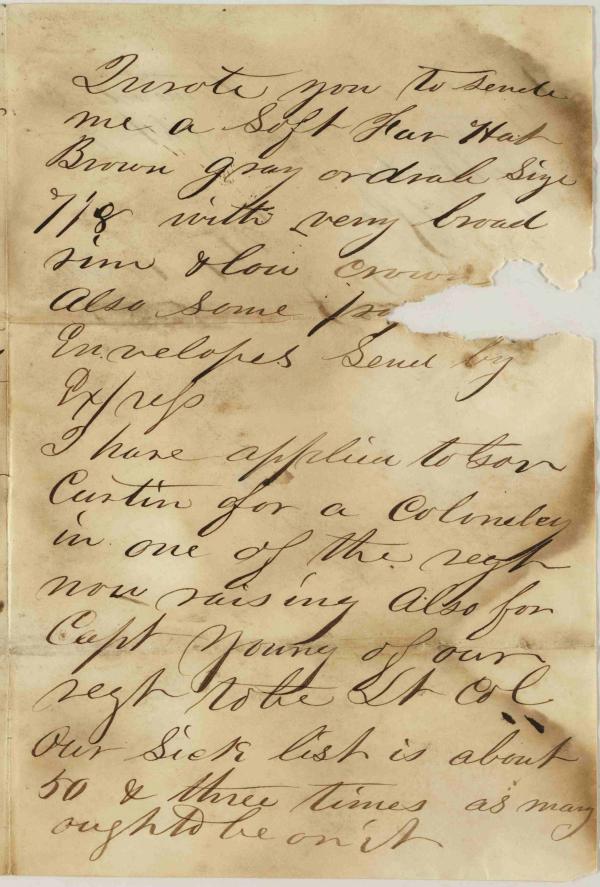 I wrote you to sende
me a Soft Fur Hat
Brown gray or drab Size
7 1/8 with very broad
rim & low crown
Also some
Envelopes Send by
Express
I have applied to Gov
Curtin for a Colonelcy
in one of the regt
now raising Also for
Capt Young of our
regt to be Lt Col
Our Sick list is about
50 & three times as many
ought to be on it